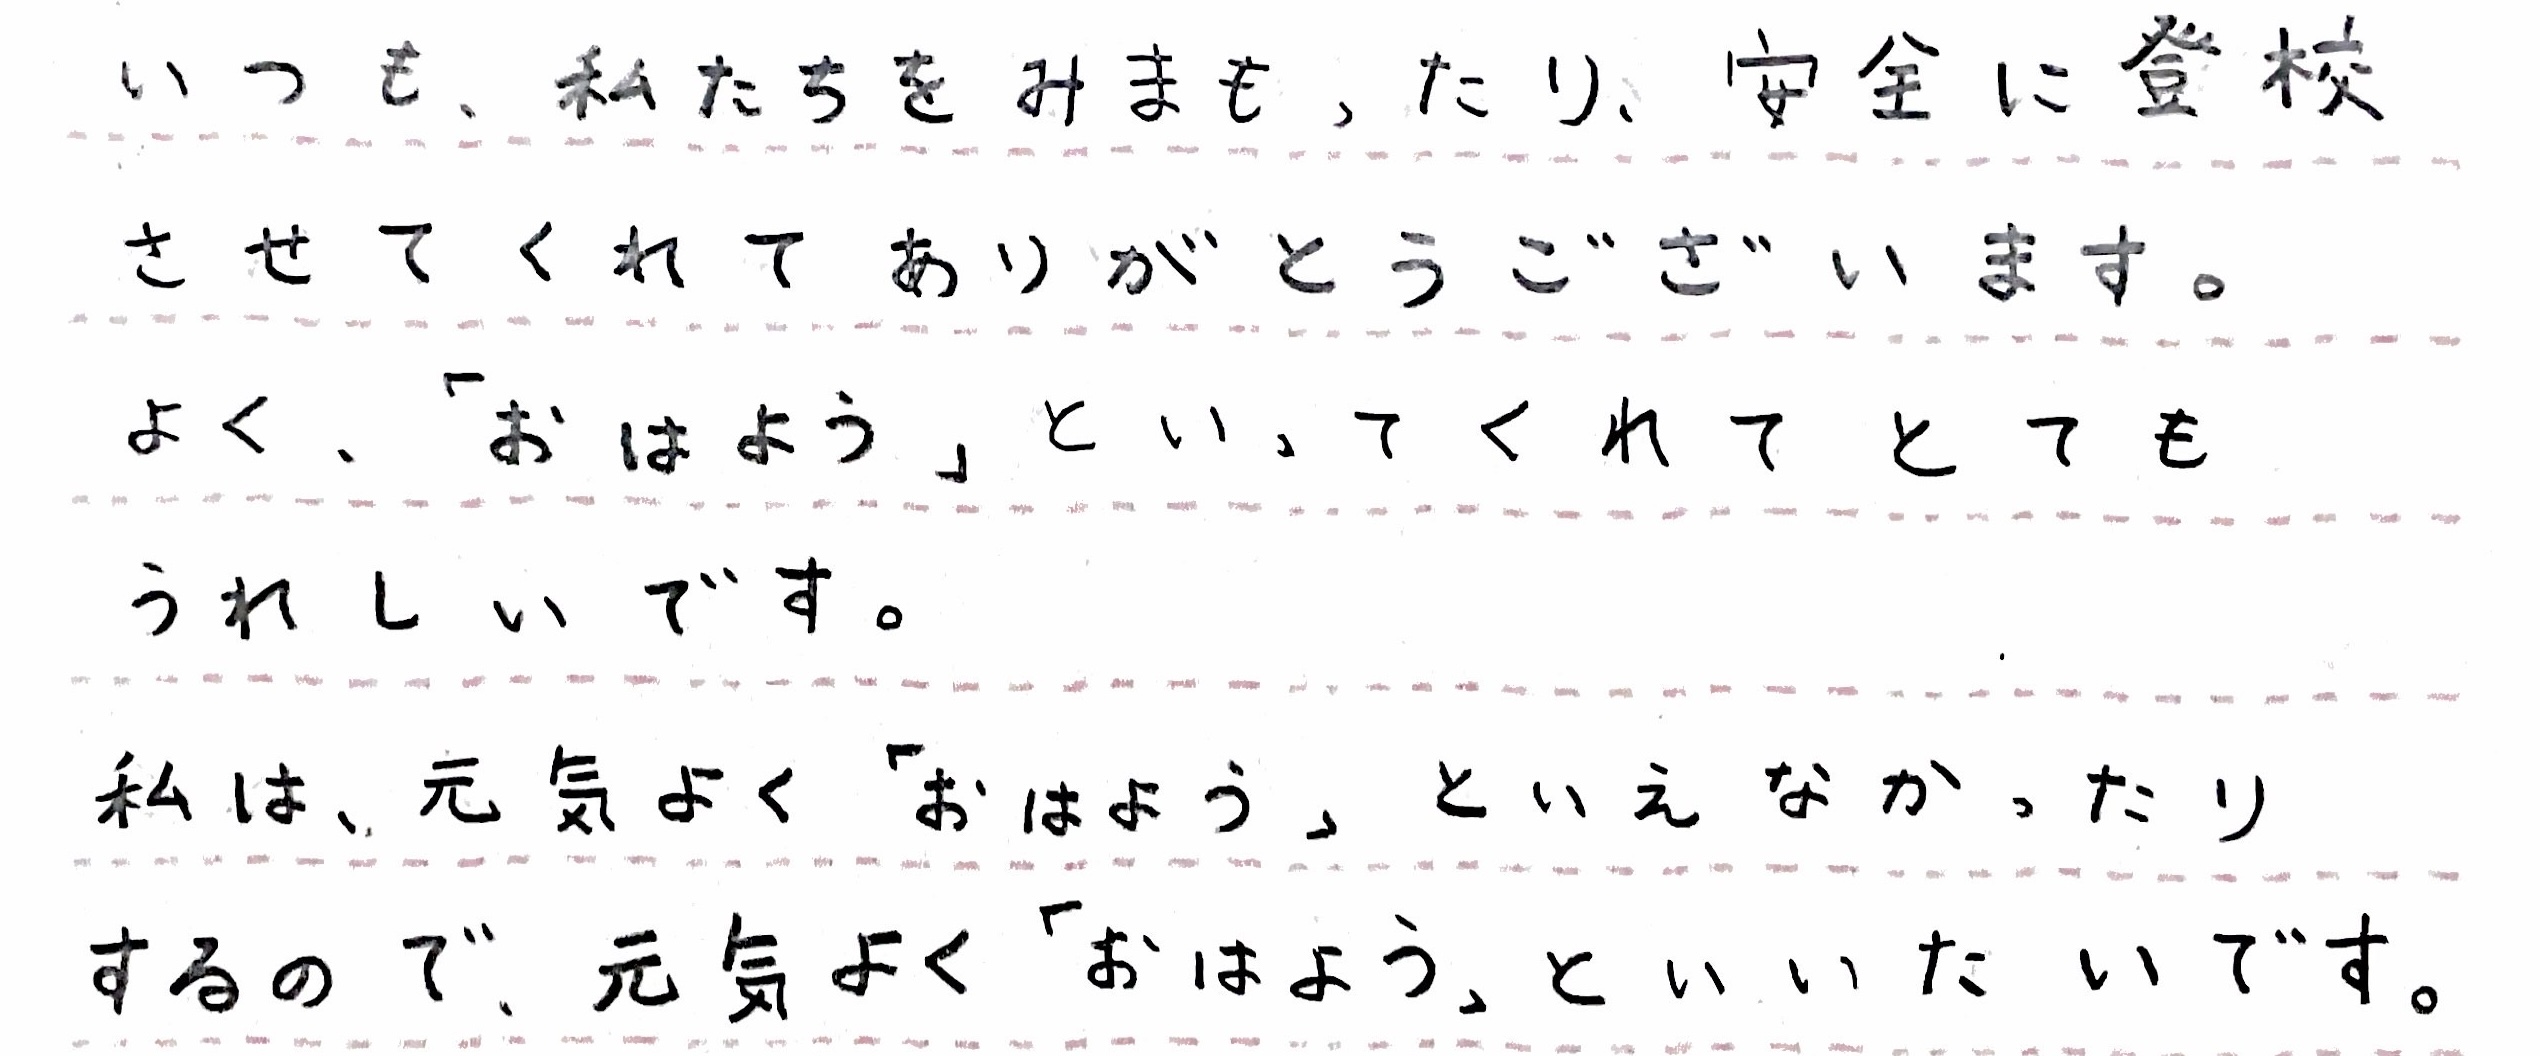 いつも、私たちをみまもったり、安全に登校
させてくれてありがとうございます。
よく、「おはよう」といってくれてとても
うれしいです。
私は、元気よく「おはよう」といえなかったり
するので、元気よく「おはよう」といいたいです。